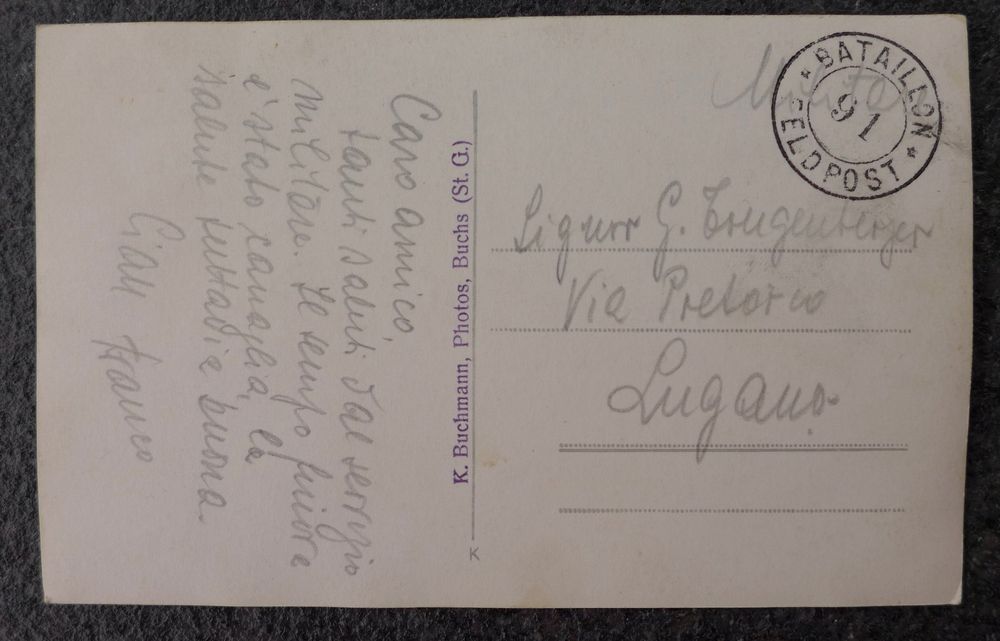 Caro amico,
tanti saluti dal servizio
militare. Se tempo finora
è stato canaglia, la
salute tuttavia è buona.
Gian Franco
K. Buchmann, Photos, Buchs (St. G.)
BATAILLON
91
FELDPOST
Signor G.
Via Pretorio
Lugano